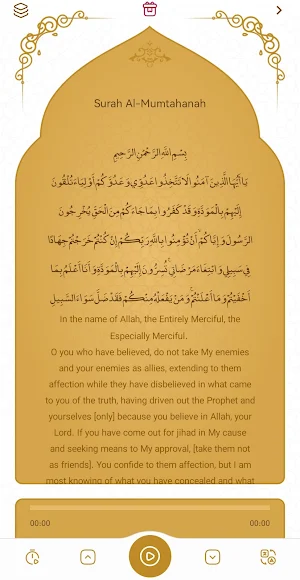 Surah Al-Mumtahanah
بِسْمِ اللَّهِ الرَّحْمَٰنِ الرَّحِيمِ
يَا أَيُّهَا الَّذِينَ آمَنُوا لَا تَتَّخِذُوا عَدُوِّي وَعَدُوَّكُمْ أَوْلِيَاءَ تُلْقُونَ
إِلَيْهِمْ بِالْمَوَدَّةِ وَقَدْ كَفَرُوا بِمَا جَاءَكُمْ مِنَ الْحَقِّ يُخْرِجُونَ
الرَّسُولَ وَإِيَّاكُمْ ۙ أَنْ تُؤْمِنُوا بِاللَّهِ رَبِّكُمْ إِنْ كُنْتُمْ خَرَجْتُمْ جِهَادًا
فِي سَبِيلِي وَابْتِغَاءَ مَرْضَاتِي ۚ تُسِرُّونَ إِلَيْهِمْ بِالْمَوَدَّةِ وَأَنَا أَعْلَمُ بِمَا
أَخْفَيْتُمْ وَمَا أَعْلَنْتُمْ ۚ وَمَنْ يَفْعَلْهُ مِنْكُمْ فَقَدْ ضَلَّ سَوَاءَ السَّبِيلِ
In the name of Allah, the Entirely Merciful, the
Especially Merciful.
O you who have believed, do not take My enemies
and your enemies as allies, extending to them
affection while they have disbelieved in what came
to you of the truth, having driven out the Prophet and
yourselves [only] because you believe in Allah, your
Lord. If you have come out for jihad in My cause
and seeking means to My approval, [take them not
as friends]. You confide to them affection, but I am
most knowing of what you have concealed and what
00:00
00:00